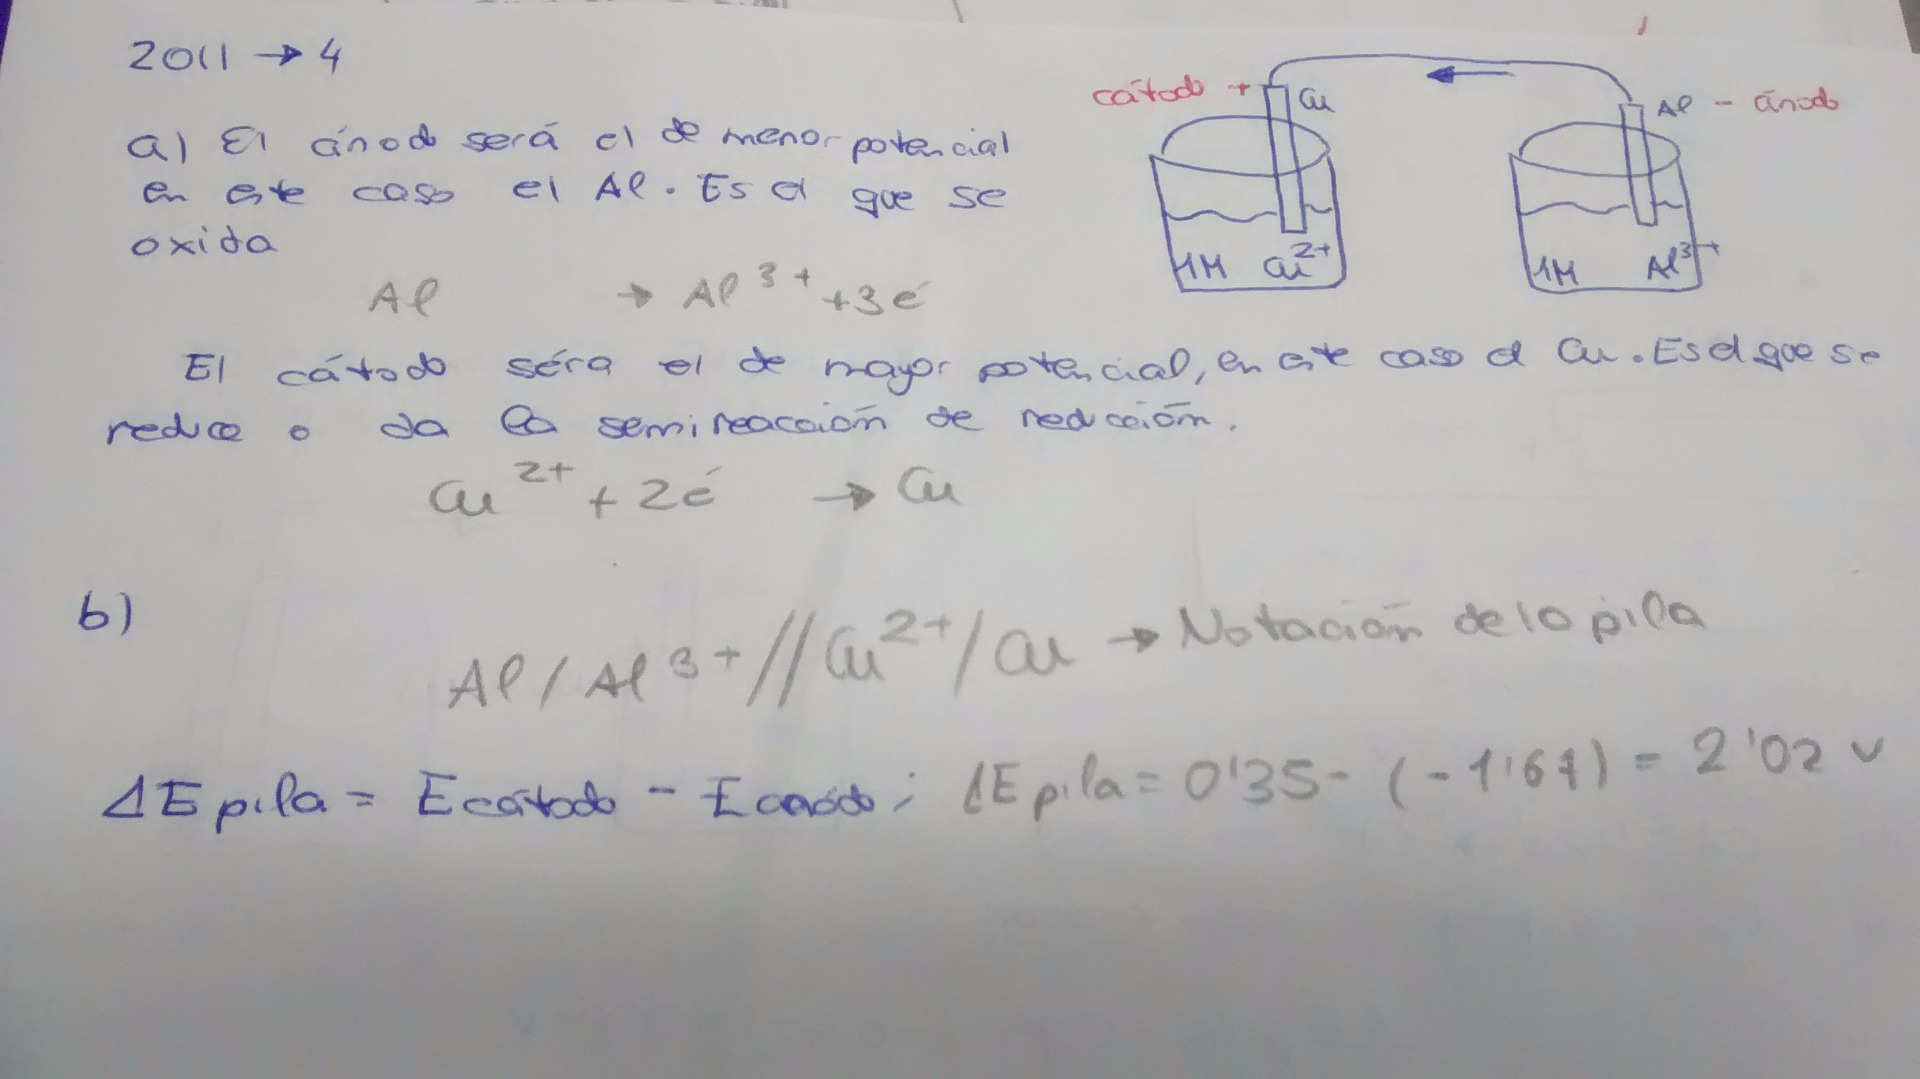 2011 → 4
cátodo + Cu
Al - ánodo
1M Cu²⁺
1M Al³⁺
a) El ánodo será el de menor potencial
en este caso el Al. Es el que se
oxida
Al → Al³⁺ + 3é
El cátodo séra el de mayor potencial, en este caso el Cu. Es el que se
reduce o da la semireacción de reducción.
Cu²⁺ + 2é → Cu
b)
Al / Al³⁺ // Cu²⁺ / Cu → Notación de la pila
ΔE pila = E cátodo - E ánodo ; ΔE pila = 0'35 - (-1'67) = 2'02 v